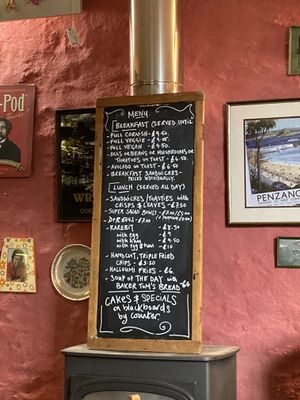 MENU
BREAKFAST (SERVED UNTIL
- FULL CORNISH - £9.50
- FULL VEGGIE - £9.00
- FULL VEGAN - £9.
- EGGS OR BEANS OR MUSHROOMS OR
TOMATOES ON TOAST - £6.50
- AVOCADO ON TOAST - £6.50
- BREAKFAST SANDWICHES -
PRICED INDIVIDUALLY.
LUNCH (SERVED ALL DAY)
- SANDWICHES/TOASTIES WITH
CRISPS & LEAVES - £7.50
- SUPER SALAD BOWLS -
- £7.00
- RAREBIT - £8.50
with egg - £9
with ham - £9.50
with egg & ham - £10
- HANDCUT, TRIPLE FRIED
CHIPS - £3.50
- HALLOUMI FRIES - £6.
- SOUP OF THE DAY with
BAKER TOM'S BREAD £6
CAKES & SPECIALS
on blackboards
by counter
-Pod
WR
PENZANC